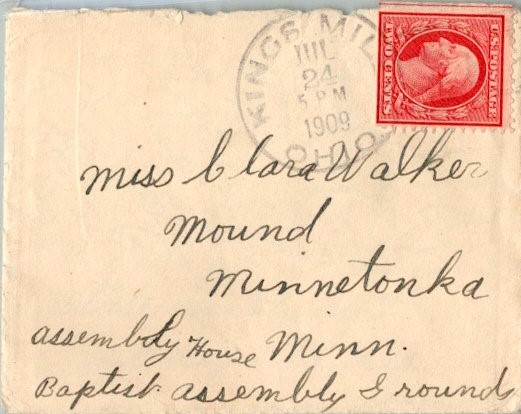 KINGS MIL
OHIO
JUL
24
5 PM
1909
U.S. POSTAGE
TWO CENTS
Miss Clara Walker
Mound
Minnetonka
Assembly House Minn.
Baptist Assembly Grounds